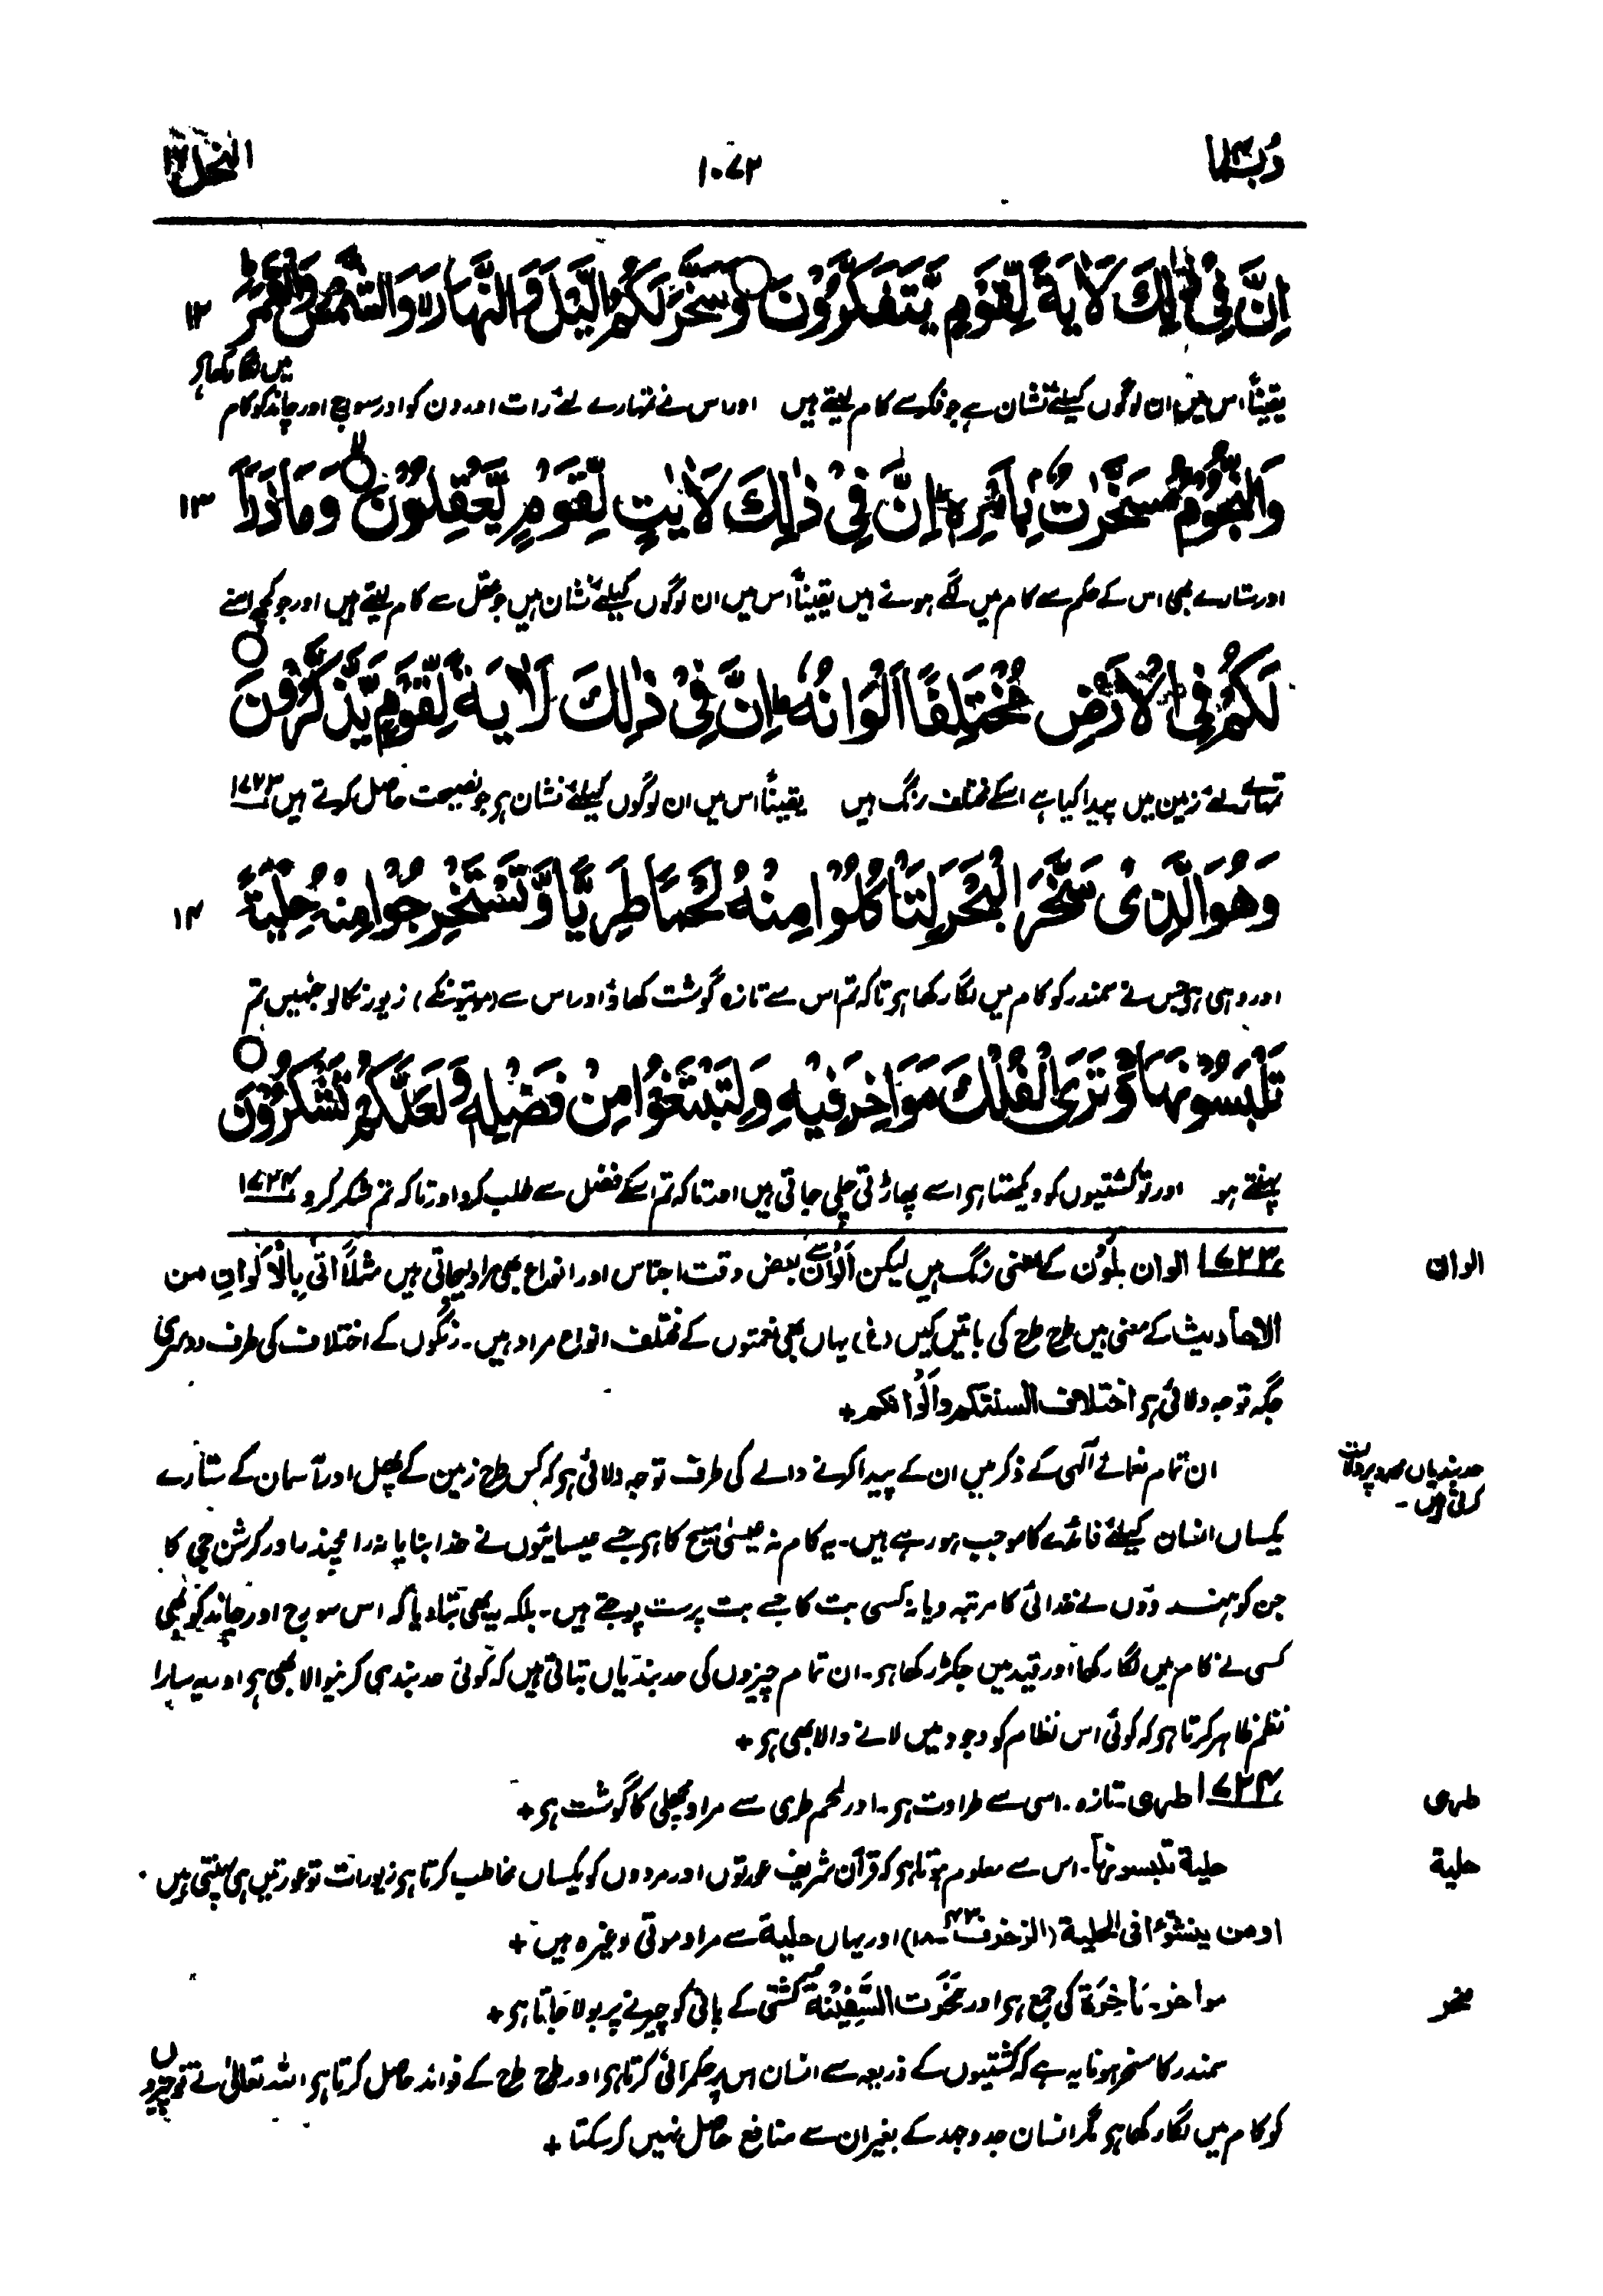 ربما ۱۴
۱۰۷۲
النحل ۱۶
اِنَّ فِیْ ذٰلِكَ لَاٰیَةً لِّقَوْمٍ یَّتَفَكَّرُوْنَ ○ وَسَخَّرَ لَكُمُ الَّیْلَ وَالنَّهَارَ ۙ وَالشَّمْسَ وَالْقَمَرَ ؕ ۱۲
یقیناً اس میں ان لوگوں کیلئے نشان ہے جو فکر سے کام لیتے ہیں اور اس نے تمہارے لئے رات اور دن کو اور سورج اور چاند کو کام
میں لگا رکھا ہر
وَالنُّجُوْمُ مُسَخَّرٰتٌۢ بِاَمْرِهٖ ؕ اِنَّ فِیْ ذٰلِكَ لَاٰیٰتٍ لِّقَوْمٍ یَّعْقِلُوْنَ ○ وَمَا ذَرَاَ ۱۳
اور ستارے بھی اس کے حکم سے کام میں لگے ہوئے ہیں یقیناً اس میں ان لوگوں کیلئے نشان ہیں جو عقل سے کام لیتے ہیں اور جو کچھ اسنے
لَكُمْ فِی الْاَرْضِ مُخْتَلِفًا اَلْوَانُهٗ ؕ اِنَّ فِیْ ذٰلِكَ لَاٰیَةً لِّقَوْمٍ یَّذَّكَّرُوْنَ ○
تمہارے لئے زمین میں پیدا کیا ہے اسکے مختلف رنگ ہیں یقیناً اس میں ان لوگوں کیلئے نشان ہر جو نصیحت حاصل کرتے ہیں ۱۷۲۳
وَهُوَ الَّذِیْ سَخَّرَ الْبَحْرَ لِتَاْكُلُوْا مِنْهُ لَحْمًا طَرِیًّا وَّتَسْتَخْرِجُوْا مِنْهُ حِلْیَةً ۱۴
اور وہی ہر جس نے سمندر کو کام میں لگا رکھا ہر تاکہ تم اس سے تازہ گوشت کھاؤ اور اس سے (موتیونکے) زیور نکالو جنہیں تم
تَلْبَسُوْنَهَا ۚ وَتَرَی الْفُلْكَ مَوَاخِرَ فِیْهِ وَلِتَبْتَغُوْا مِنْ فَضْلِهٖ وَلَعَلَّكُمْ تَشْكُرُوْنَ ○
پہنتے ہو اور تو کشتیوں کو دیکھتا ہر اسے پھاڑتی چلی جاتی ہیں اور تاکہ تم اسکے فضل سے طلب کرو اور تاکہ تم شکر کرو ۱۷۲۴
الوان
۱۷۲۳ الوان بلَوْن کے معنی رنگ ہیں لیکن اَلْوَان سے بعض وقت اجناس اور انواع بھی مراد لیجاتی ہیں مثلاً اتٰی بِالْاَلْوَانِ من
الاحادیث کے معنی ہیں طرح طرح کی باتیں کیں (غ) یہاں بھی نعمتوں کے مختلف انواع مراد ہیں۔ رنگوں کے اختلاف کی طرف دوسری
جگہ توجہ دلائی ہر اختلاف السنتکم والوانکم +
حدبندیاں
کرتی ہیں۔
ان تمام نعمائے الٰہی کے ذکر میں ان کے پیدا کرنے والے کی طرف توجہ دلائی ہر کہ کس طرح زمین کے پھل اور آسمان کے ستارے
یکساں انسان کیلئے فائدے کا موجب ہو رہے ہیں۔ یہ کام نہ عیسیٰ مسیح کا ہر جسے عیسائیوں نے خدا بنایا نہ رامچندر اور کرشن جی کا
جن کو ہندوؤں نے خدائی کا مرتبہ دیا نہ کسی بت کا جسے بت پرست پوجتے ہیں۔ بلکہ یہ بھی بتا دیا کہ اس سورج اور چاند کو بھی
کسی نے کام میں لگا رکھا اور قید میں جکڑ رکھا ہر۔ ان تمام چیزوں کی حدبندیاں بتاتی ہیں کہ کوئی حدبندی کرنیوالا بھی ہر اور یہ سارا
نظم ظاہر کرتا ہر کہ کوئی اس نظام کو وجود میں لانے والا بھی ہر +
طری
۱۷۲۴ طری۔ تازہ۔ اسی سے طراوت ہر۔ اور لحم طری سے مراد مچھلی کا گوشت ہر +
حلیة
حلیة تلبسونها۔ اس سے معلوم ہوتا ہر کہ قرآن شریف عورتوں اور مردوں کو یکساں مخاطب کرتا ہر زیورات تو عورتیں ہی پہنتی ہیں۔
اومن ینشؤا فی الحلیة (الزخرف ۴۳۔۱۸) اور یہاں حلیة سے مراد موتی وغیرہ ہیں +
مخر
مواخر۔ مَاخِرَة کی جمع ہر اور مَخَرَت السَّفِیْنَةُ کشتی کے پانی کو چیرنے پر بولا جاتا ہر +
سمندر کا مسخر ہونا یہ ہے کہ کشتیوں کے ذریعہ سے انسان اس پر حکمرانی کرتا ہر اور طرح طرح کے فوائد حاصل کرتا ہر اللہ تعالیٰ نے تو چیزوں
کو کام میں لگا رکھا ہر مگر انسان جدوجہد کے بغیر ان سے منافع حاصل نہیں کر سکتا +